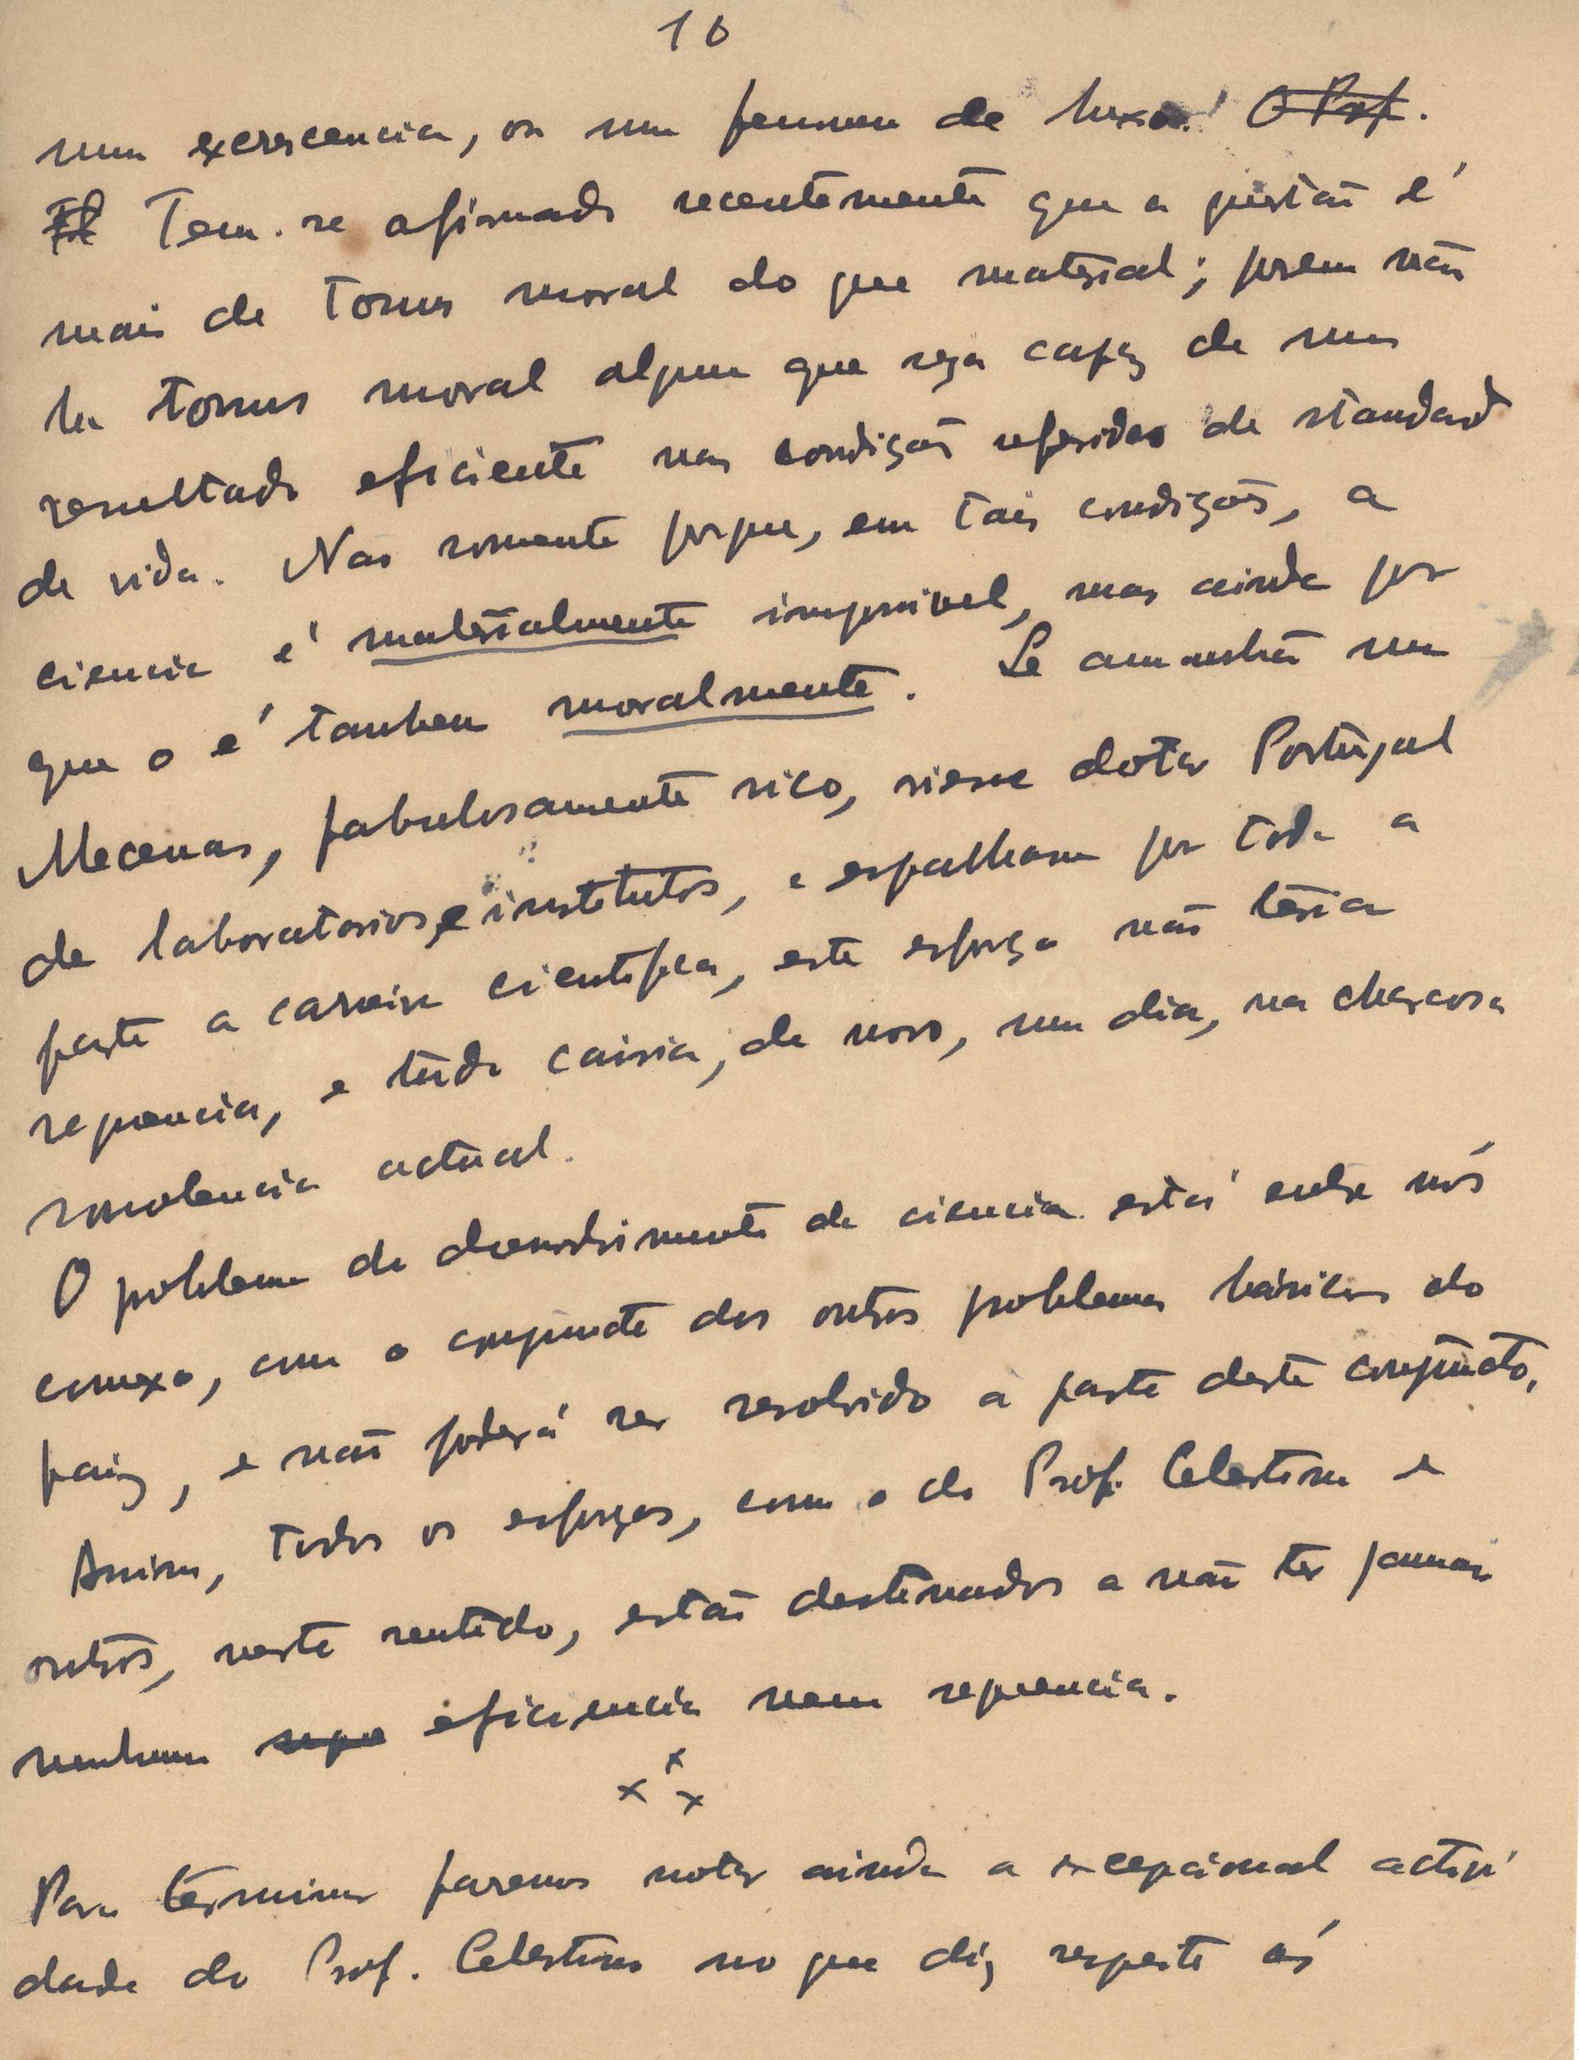 16
uma excrescencia, ou um fenomeno de luxo! O Prof.
Tem-se afirmado recentemente que a questão é
mais de tonus moral do que material; porem não
ha tonus moral algum que seja capaz de um
resultado eficiente nas condições referidas de standard
de vida. Não somente porque, em tais condições, a
ciencia é materialmente impossivel, mas ainda por
que o é tambem moralmente. Se amanhã um
Mecenas, fabulosamente rico, viesse dotar Portugal
de laboratorios e institutos, e espalhasse por toda a
parte a carreira cientifica, este esforço não teria
sequencia, e tudo cairia, de novo, um dia, na
sonolencia actual.
O problema do desenvolvimento da ciencia está entre nós
conexo, com o conjuncto dos outros problemas básicos do
paiz, e não poderá ser resolvido a parte deste conjuncto,
Assim, todos os esforços, como o do Prof. Celestino e
outros, neste sentido, estão destinados a não ter jamais
nenhuma eficiencia nem sequencia.
x x x
Para terminar faremos notar ainda a excepcional activi
dade do Prof. Celestino no que diz respeito ás